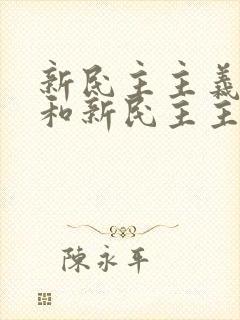 新民主主義
和新民主主
陳永平